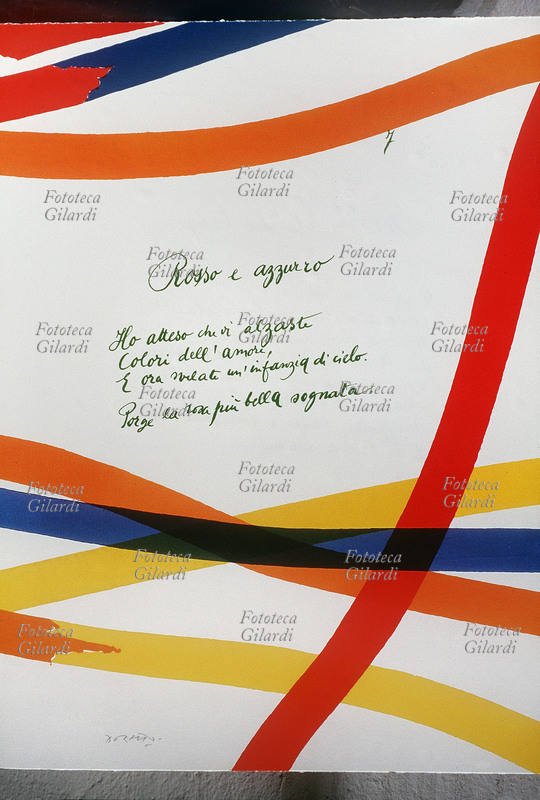 7
Rosso e azzurro
Ho atteso che vi alzaste
Colori dell'amore,
E ora svelate un'infanzia di cielo.
Porge la rosa più bella sognata.
Fototeca
Gilardi
Fototeca
Gilardi
Fototeca
Gilardi
Fototeca
Gilardi
Fototeca
Gilardi
Fototeca
Gilardi
Fototeca
Gilardi
Fototeca
Gilardi
Fototeca
Gilardi
Fototeca
Gilardi
Fototeca
Gilardi
Fototeca
Gilardi
Fototeca
Gilardi
Fototeca
Gilardi
Fototeca
Gilardi
Fototeca
Gilardi
Fototeca
Gilardi
Fototeca
Gilardi